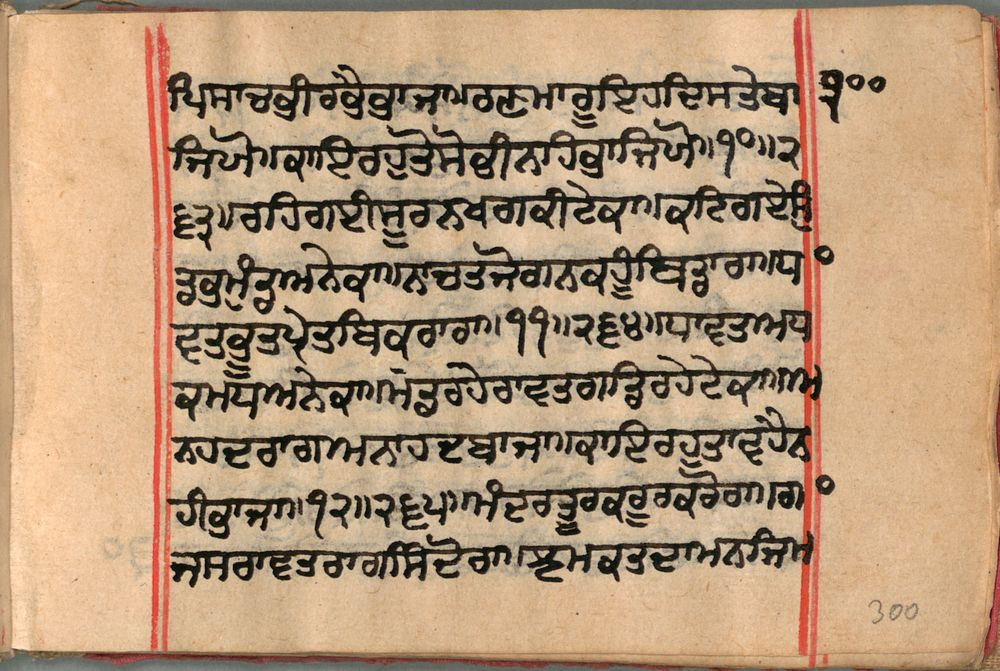 ਪਿਸਾਚਭੀਰਭੈਭਾਜਾ॥ਰਣਮਾਰੂਇਹਦਿਸਤੇਬਾ ੧੦੦
ਜਿਯੋ॥ਕਾਇਰਹੁਤੋਸੋਭੀਨਹਿਭਾਜਿਯੋ॥੧੦॥੨
੬੩॥ਰਹਿਗਈਸੂਰਨਖਗਕੀਟੇਕਾ॥ਕਟਿਗਏਸੁੰ
ਡਭਸੁੰਡਅਨੇਕਾ॥ਨਾਚਤਜੋਗਨਕਰੂੰਬਿਡਾਰਾ॥ਧ
ਵਤਭੂਤਪ੍ਰੇਤਬਿਕਰਾਰਾ॥੧੧॥੨੬੪॥ਧਾਵਤਅਧ
ਕਮਧਅਨੇਕਾ॥ਮੰਡਰਹੇਰਾਵਤਗਡਿਰਹੇਟੇਕਾ॥ਅ
ਨਹਦਰਾਗਅਨਾਹਦਬਾਜਾ॥ਕਾਇਰਹੁਤਾਵਹੈਨ
ਹੀਭਾਜਾ॥੧੨॥੨੬੫॥ਮੰਦਰਤੂਰਕਰੂਰਕਰੋਰਾ॥ਗਾ
ਜਸਰਾਵਤਰਾਗਸਿੰਦੋਰਾ॥ਝਮਕਤਦਾਮਨਜਿਮ
300